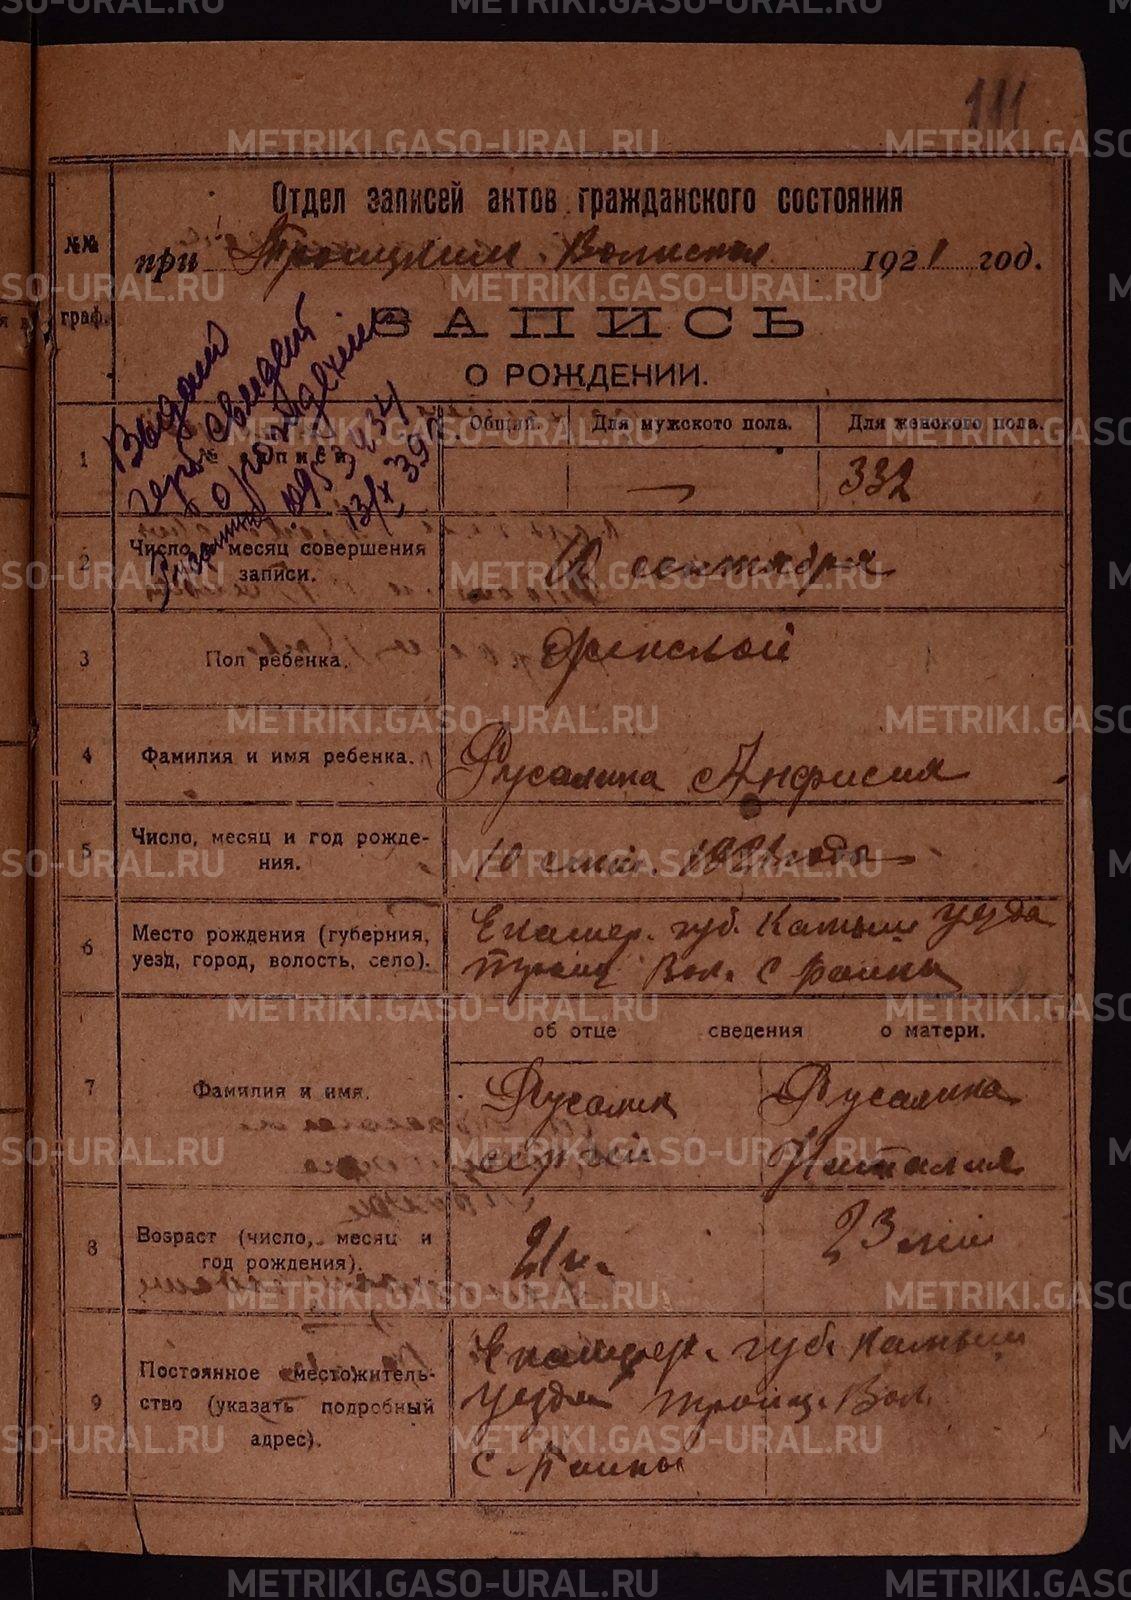 111
Отдел записей актов гражданского состояния
№№ граф.
при Троицким Волиспол 1921 год.
ЗАПИСЬ
О РОЖДЕНИИ.
Выдано
герб свидет
о рождении
13/X 39 г.
1
№ записи
Общий.
Для мужского пола.
Для женского пола.
—
332
2
Число и месяц совершения
записи.
10 сентября
3
Пол ребенка.
Женской
4
Фамилия и имя ребенка.
Русалина Анфисия
5
Число, месяц и год рожде-
ния.
10 сент. 1921 года
6
Место рождения (губерния,
уезд, город, волость, село).
Екатер. губ. Камыш уезда
Троиц Вол. С
7
Фамилия и имя.
об отце сведения о матери.
Русалин
Сергей
Русалина
Наталия
8
Возраст (число, месяц и
год рождения).
21 л.
23 лет
9
Постоянное местожитель-
ство (указать подробный
адрес).
Екатер. губ. Камыш
уезда Троиц. Вол.
с.
METRIKI.GASO-URAL.RU